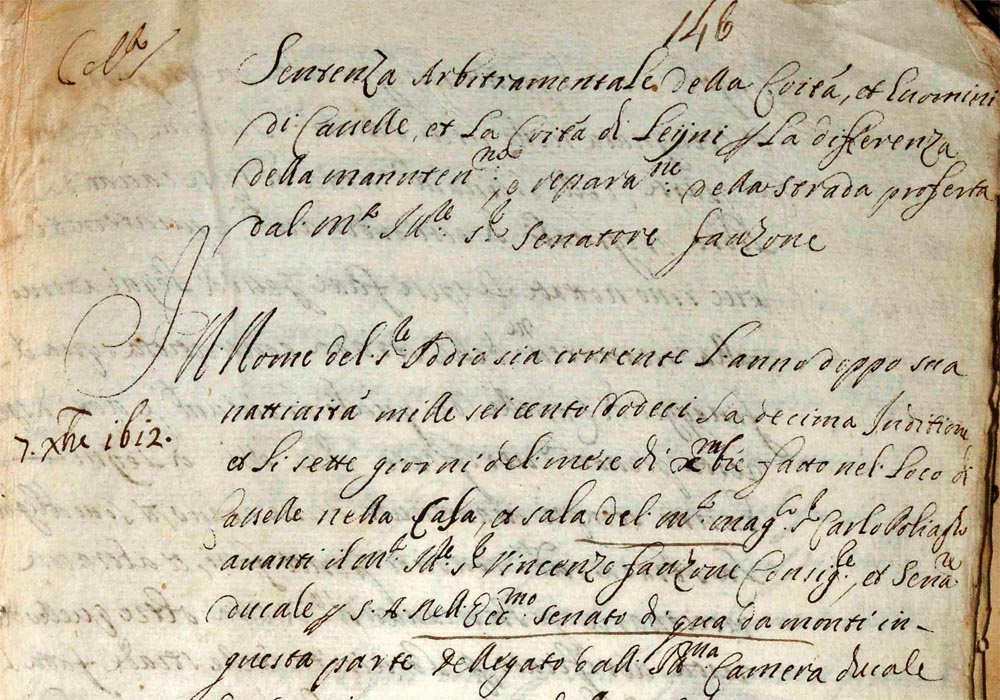 146
Sentenza Arbitramentale della Co.ità, et huomini
di Caselle, et La Co.ità di Leijni p La differenza
della manuten.no: e repara.ne: della strada profferta
dal m.to Ill.re s.r Senatore Fauzone
In Nome del s.re Iddio sia corrente L'anno doppo sua
nattività mille seicento dodeci La decima Inditione
7. Xbre 1612.
et Li sette giorni del mese di Xmbre fatto nel Loco di
Caselle nella Casa, et sala del m.to mag.co s.r Carlo
avanti il m.to Ill.re s.r Vincenzo Fauzone Consig.re, et Sena.re
Ducale p S. A. nell Ecc.mo Senato di qua da monti in-
questa parte dellegato dall Ill.ma Camera ducale